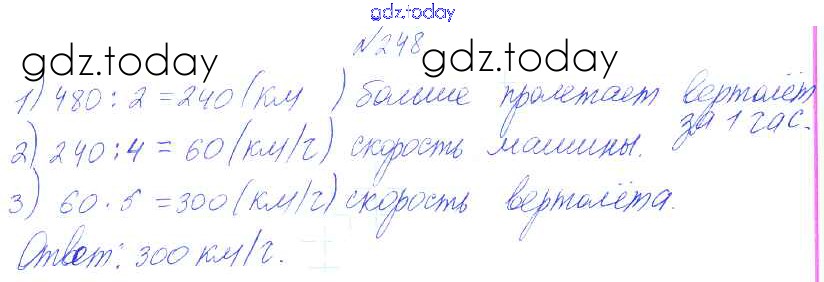 gdz.today
№248
gdz.today gdz.today
1) 480 : 2 = 240 (км ) больше пролетает вертолёт
за 1 час.
2) 240 : 4 = 60 (км/ч) скорость машины.
3) 60 · 5 = 300 (км/ч) скорость вертолёта.
Ответ: 300 км/ч.